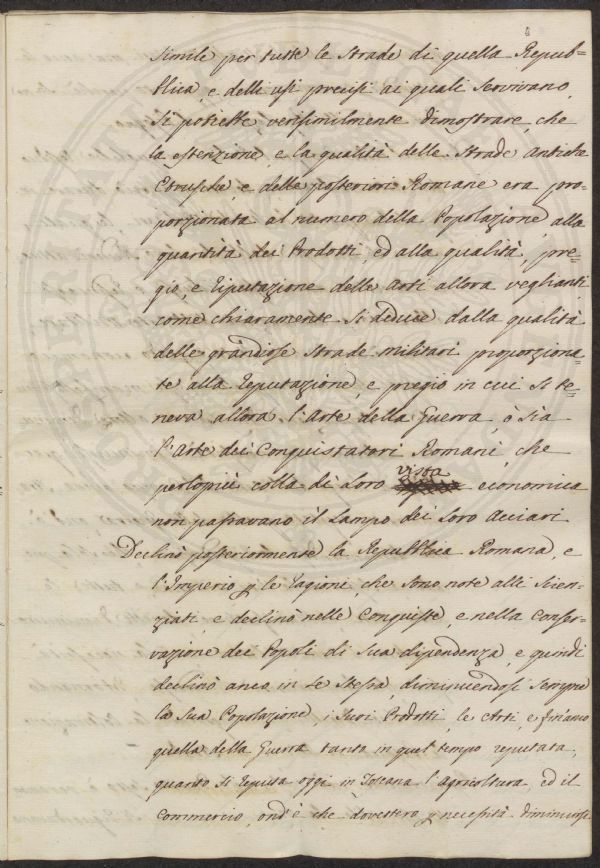 simile per tutte le strade di quella Repub=
blica, e delli usi precisi ai quali servivano,
si potrebbe verisimilmente dimostrare, che
la estenzione, e la qualità delle Strade antiche
Etrusche, e delle posteriori Romane era pro=
porzionata al numero della Popolazione, alla
quantità dei Prodotti, ed alla qualità, pre=
gio, e riputazione delle Arti allora veglianti,
come chiaramente si deduce dalla qualità
delle grandiose strade militari proporziona=
te alla reputazione, e pregio in cui si te=
neva allora l'Arte della Guerra, ò sia
l'Arte dei Conquistatori Romani, che
perlopiù colla di loro vista economica
non passavano il Lampo dei loro Acciari
Declinò posteriormente la Repubblica Romana, e
l'Imperio p le ragioni, che sono note alli Scien=
ziati, e declinò nelle Conquiste, e nella Conser=
vazione dei Popoli di sua dipendenza, e quindi
declinò anco in se stessa diminuendosi sempre
la sua Popolazione, i suoi Prodotti, le Arti, e financo
quella della Guerra tanto in quel tempo reputata,
quanto si reputa oggi in Toscana l'agricoltura, ed il
commercio, ond'è che dovettero p necessità diminuirsi